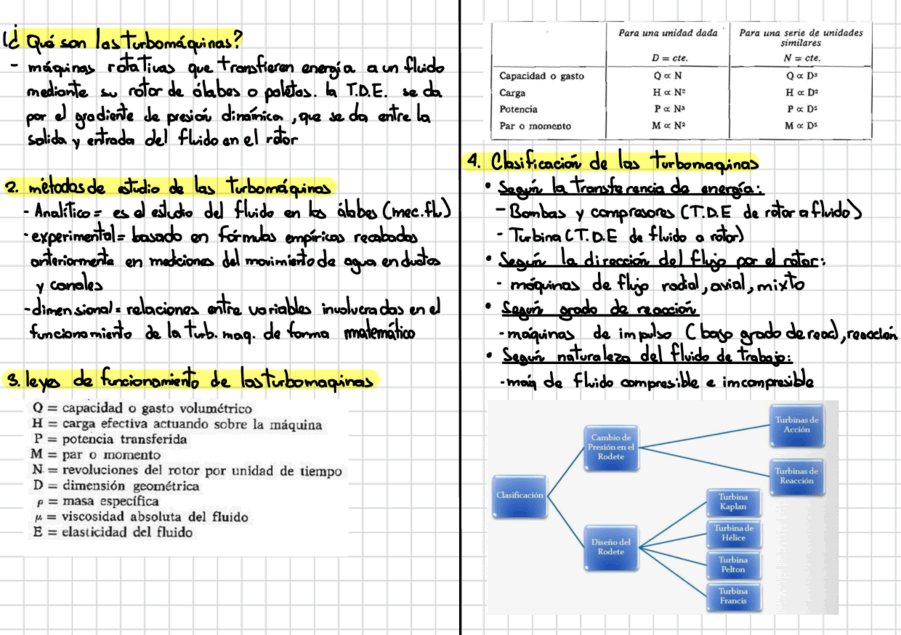 1¿ Qué son las turbomáquinas?
- máquinas rotativas que transfieren energía a un fluido
mediante su rotor de álabes o paletas. la T.D.E. se da
por el gradiente de presión dinámica, que se da entre la
salida y entrada del fluido en el rotor
2. métodos de estudio de las turbomáquinas
- Analítico = es el estudio del fluido en los álabes (mec.fl.)
- experimental = basado en fórmulas empíricas recabadas
anteriormente en mediciones del movimiento de agua en ductos
y canales
- dimensional = relaciones entre variables involucradas en el
funcionamiento de la tub. maq. de forma matemático
3. leyes de funcionamiento de las turbomaquinas
Q = capacidad o gasto volumétrico
H = carga efectiva actuando sobre la máquina
P = potencia transferida
M = par o momento
N = revoluciones del rotor por unidad de tiempo
D = dimensión geométrica
ρ = masa específica
μ = viscosidad absoluta del fluido
E = elasticidad del fluido
Para una unidad dada Para una serie de unidades
similares
D = cte. N = cte.
Capacidad o gasto Q ∝ N Q ∝ D³
Carga H ∝ N² H ∝ D²
Potencia P ∝ N³ P ∝ D⁵
Par o momento M ∝ N² M ∝ D⁵
4. Clasificación de las turbomaquinas
• Según la transferencia de energía:
- Bombas y compresores (T.D.E de rotor a fluido)
- Turbina (T.D.E de fluido a rotor)
• Según la dirección del flujo por el rotor:
- máquinas de flujo radial, axial, mixto
• Según grado de reacción
- máquinas de impulso (bajo grado de reac), reacción
• Según naturaleza del fluido de trabajo:
- maq de fluido compresible e imcompresible
Clasificación
Cambio de
Presión en el
Rodete
Turbinas de
Acción
Turbinas de
Reacción
Diseño del
Rodete
Turbina
Kaplan
Turbina de
Hélice
Turbina
Pelton
Turbina
Francis